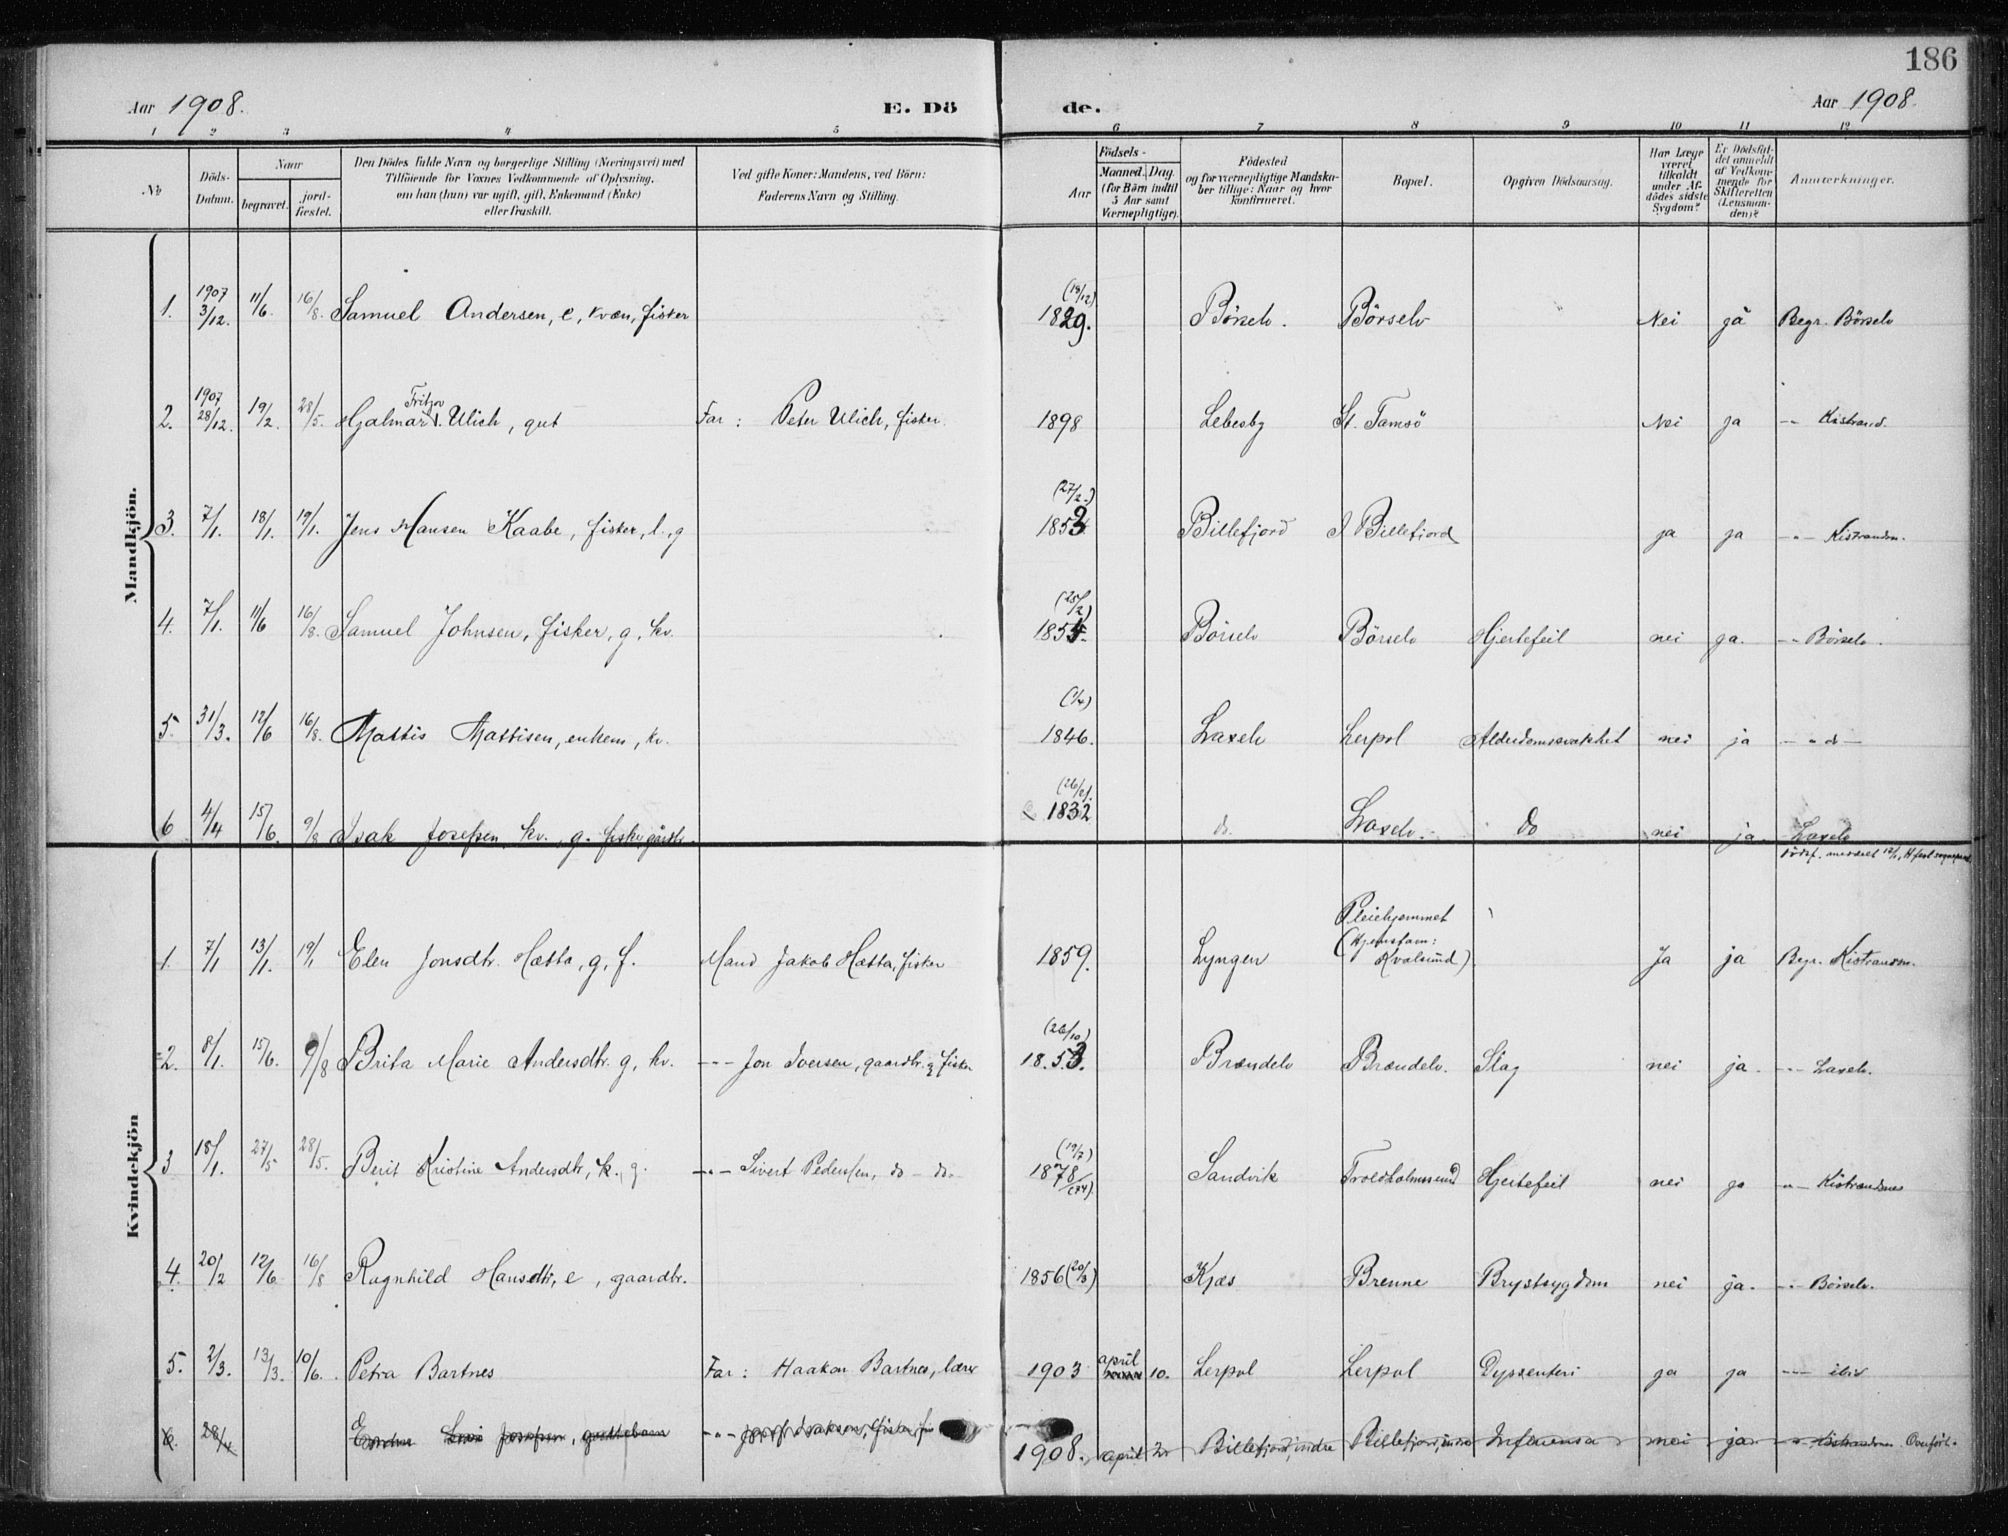 186
Aar 1908. E. Dö de. Aar 1908.
1 2 3 4 5 6 7 8 9 10 11 12
No
Döds-Datum.
Naar
begravet.
jord-fæstet.
Den Dödes fulde Navn og borgerlige Stilling (Næringsvei) med
Tilföiende for Voxnes Vedkommende af Oplysning,
om han (hun) var ugift, gift, Enkemand (Enke)
eller fraskilt.
Ved gifte Koner: Mandens, ved Börn:
Faderens Navn og Stilling.
Födsels-
Aar
Maaned. Dag.
(for Börn indtil
5 Aar samt
Værnepligtige).
Födested
og for værnepligtige Mandska-
ber tillige: Naar og hvor
konfirmeret.
Bopæl.
Opgiven Dödsaarsag.
Har Læge
været
tilkaldt
under Af-
dödes sidste
Sygdom?
Er Dödsfal-
det anmeldt
af Vedkom-
mende for
Skifteretten
(Lensman-
den)?
Anmærkninger.
Mandkjön.
1. 1907 3/12. 11/6. 16/8. Samuel Andersen, e, kvæn, fisker (19/12) 1829. Börselv. Börselv Nei ja Begr. Börselv
2. 1907 28/12. 19/2. 28/5. Hjalmar Fritjov Ulich, gut Far: Peter Ulich, fisker. 1898 Lebesby St. Tamsö Nei ja -"- Kistrand.
3. 7/1. 18/1. 19/1. Jens Hansen Kaabe, fisker, l., g (27/2.) 1853 Billefjord I Billefjord ja ja -"- Kistrandm.
4. 7/1. 11/6 16/8. Samuel Johnsen, fisker, g, kv. (25/2) 1854. Börselv Börselv Hjertefeil nei ja. -"- Börselv.
5. 31/3. 12/6 16/8. Mattis Mattisen, enkem, kv. (1/4) 1846. Laxelv Lerpol Alderdomssvakhet nei ja -"- do -
6 4/4 15/6. 9/8 Isak Josefsen kv., g. fisker gårdbr. (26/2). 1832 do. Laxelv. do nei ja. Laxelv
Kvindekjön
1. 7/1 13/1. 19/1 Elen Jonsdtr. Hætta, g, f. Mand Jakob Hætta, fisker 1859. Lyngen Pleiehjemmet (Hjemstam: Kvalsund). Ja ja Begr. Kistrandm.
2. 8/1. 15/6. 9/8 Brita Marie Andersdtr. g, kv. -"- Jon Iversen, gaardbr. & fisker 26/10) 18.53. Brændelv Brændelv. Slag nei ja. -"- Laxelv.
3 18/1. 27/5 28/5. Berit Kristine Andersdtr, k. g. -"- Sivert Pedersen, do - do. (19/2) 1878/(74) Sandvik Troldholmssund Hjertefeil nei ja -"- Kistrandnes
4. 20/2 12/6. 16/8 Ragnhild Hansdtr, e, gaardbr. 1856 (20/3) Kjæs Brenne Brystsygdom nei ja. -"- Börselv.
5. 2/3. 13/3. 10/6. Petra Bartnes Far: Haakon Bartnes, lærer 1903 april 10. Lerpol Lerpol Dyssenteri ja ja -"-
6. 28/4 Josefsen, guttebarn -"- Josef Isaksen, fisker 1908. april Billefjord, indre Billefjord, indre Influensa nei ja -"- Kistrandnes Overfört.